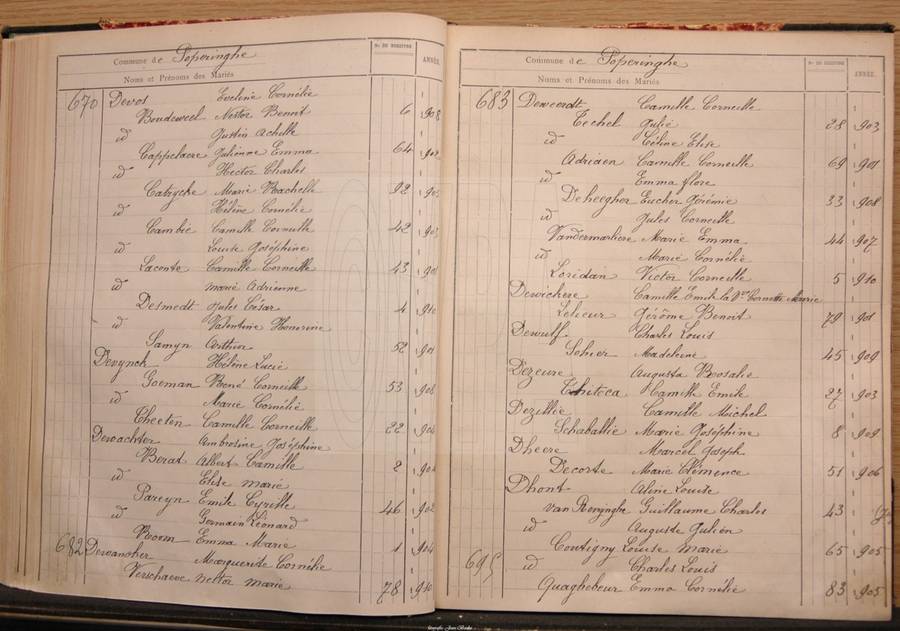 Commune de Poperinghe
No DU REGISTRE
ANNÉE
Noms et Prénoms des Mariés
670 Devos Eveline Cornélie
Boudeweel Nestor Benoit 6 908
id Justin Achille
Cappelaere Julienne Emma 64 902
id Hector Charles
Catryche Marie Rachelle 92
id Hélène Cornélie
Cambie Camille Corneille 42
id Louise Joséphine
Laconte Camille Corneille 43
id Marie Adrienne
Desmedt Jules César 4 910
id Valentine Honorine
Samyn Arthur 52
Devynch Hélène Lucie
Goeman René Corneille 53 908
id Marie Cornélie
Cheeten Camille Corneille 22 904
Dewachter Ambrosine Joséphine
Berat Albert Camille 2
id Elise Marie
Pareyn Emile Cyrille 46 902
id Germain Léonard
Boom Emma Marie 1 904
682 Dewancker Marguerite Cornélie
Verschaeve Nestor Marie 78 910
Commune de Poperinghe
No DU REGISTRE
ANNÉE.
Noms et Prénoms des Mariés
683 Deweerdt Camille Corneille
Techel Julie 28 903
id Céline Elise
Adriaen Camille Corneille 69 901
id Emma Flore
Deheegher Eucher Jérémie 33 908
id Jules Corneille
Vandermarliere Marie Emma 44 907
id Marie Cornélie
Loridan Victor Corneille 5 910
Dewichere Camille Emile la Vve Cornette Marie
Leheur Jérôme Benoit 79 901
Dewulf Charles Louis
Sohier Madeleine 45 909
Dezeure Augusta Rosalie
Camille Emile 27 903
Dezillie Camille Michel
Schaballie Marie Joséphine 8 909
Dheere Marcel Joseph
Decorte Marie Clémence 51 906
Dhont Aline Louise
Van Renynghe Guillaume Charles 43
id Auguste Julien
Contigny Louise Marie 65 905
695 id Charles Louis
Quaghebeur Emma Cornélie 83 905